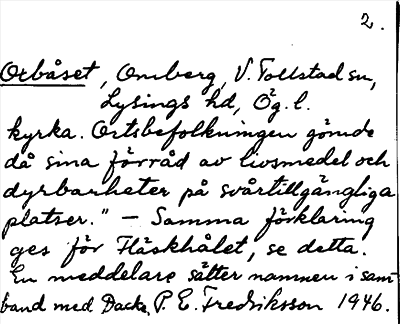 2.
Otbåset, Omberg, V. Tollstad sn,
Lysings hd, Ög. l.
kyrka. Ortsbefolkningen gömde
då sina förråd av livsmedel och
dyrbarheter på svårtillgängliga
platser." – Samma förklaring
ges för Fläskhålet, se detta.
En meddelare sätter namnen i sam-
band med Dacke. P. E. Fredriksson 1946.